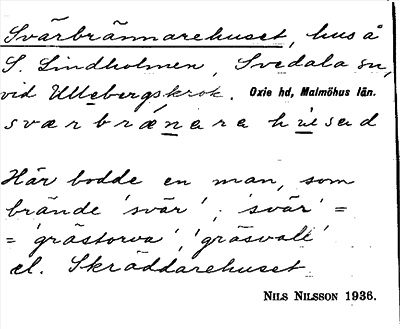 Svärbrännarehuset, hus å
S. Lindholmen, Svedala sn,
vid Ullebergskrok. Oxie hd, Malmöhus län.
Här bodde en man, som
brände 'svär'; 'svär' =
= 'grästorva', 'gräsvall'
el. Skräddarehuset.
NILS NILSSON 1936.